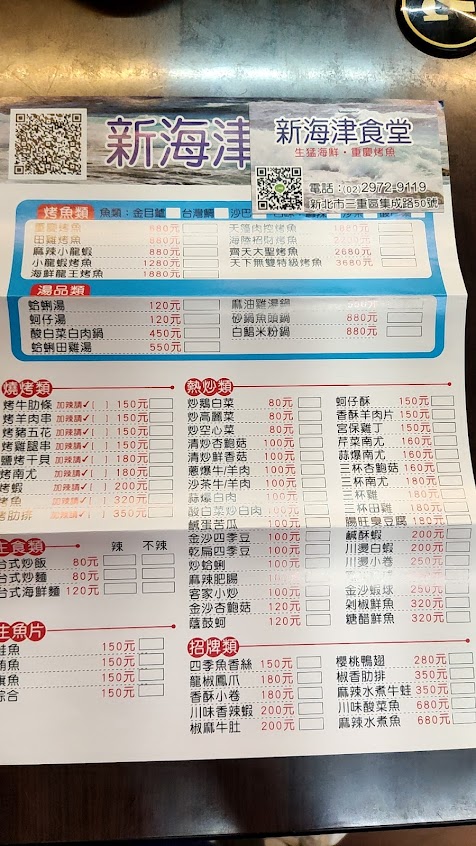 新海津
新海津食堂
生猛海鮮・重慶烤魚
電話：(02)2972-9119
新北市三重區集成路50號
烤魚類 魚類：金目鱸 台灣鯛 沙巴
重慶烤魚 680元
田雞烤魚 880元
麻辣小龍蝦 880元
小龍蝦烤魚 1280元
海鮮龍王烤魚 1880元
天蓬肉控烤魚
海陸招財烤魚
齊天大聖烤魚 2680元
天下無雙特級烤魚 3680元
湯品類
蛤蜊湯 120元
蚵仔湯 120元
酸白菜白肉鍋 450元
蛤蜊田雞湯 550元
麻油雞湯鍋
砂鍋魚頭鍋 880元
白鯧米粉鍋 880元
燒烤類
烤牛肋條 加辣請✓( ) 150元
烤羊肉串 加辣請✓( ) 150元
烤豬五花 加辣請✓( ) 150元
烤雞腿串 加辣請✓( ) 150元
鹽烤干貝 加辣請✓( ) 180元
烤南尤 加辣請✓( ) 180元
烤蝦 加辣請✓( ) 200元
烤魚 加辣請✓( ) 320元
烤肋排 加辣請✓( ) 350元
主食類 辣 不辣
台式炒飯 80元
台式炒麵 80元
台式海鮮麵 120元
生魚片
鮭魚 150元
鮪魚 150元
旗魚 150元
綜合 150元
熱炒類
炒鵝白菜 80元
炒高麗菜 80元
炒空心菜 80元
清炒杏鮑菇 100元
清炒鮮香菇 100元
蔥爆牛/羊肉 100元
沙茶牛/羊肉 100元
蒜爆白肉 100元
酸白菜炒白肉 100元
鹹蛋苦瓜 100元
金沙四季豆 100元
乾扁四季豆 100元
炒蛤蜊 100元
麻辣肥腸 100元
客家小炒 100元
金沙杏鮑菇 120元
蔭鼓蚵 120元
蚵仔酥 150元
香酥羊肉片 150元
宮保雞丁 150元
芹菜南尤 160元
蒜爆南尤 160元
三杯杏鮑菇 160元
三杯南尤 180元
三杯雞 180元
三杯田雞 180元
腸旺臭豆腐 180元
鹹酥蝦 200元
川燙白蝦 200元
川燙小卷 250元
金沙蝦球 250元
剁椒鮮魚 320元
糖醋鮮魚 320元
招牌類
四季魚香絲 150元
龍椒鳳爪 180元
香酥小卷 180元
川味香辣蝦 200元
椒麻牛肚 200元
櫻桃鴨翅 280元
椒香肋排 350元
麻辣水煮牛蛙 350元
川味酸菜魚 680元
麻辣水煮魚 680元